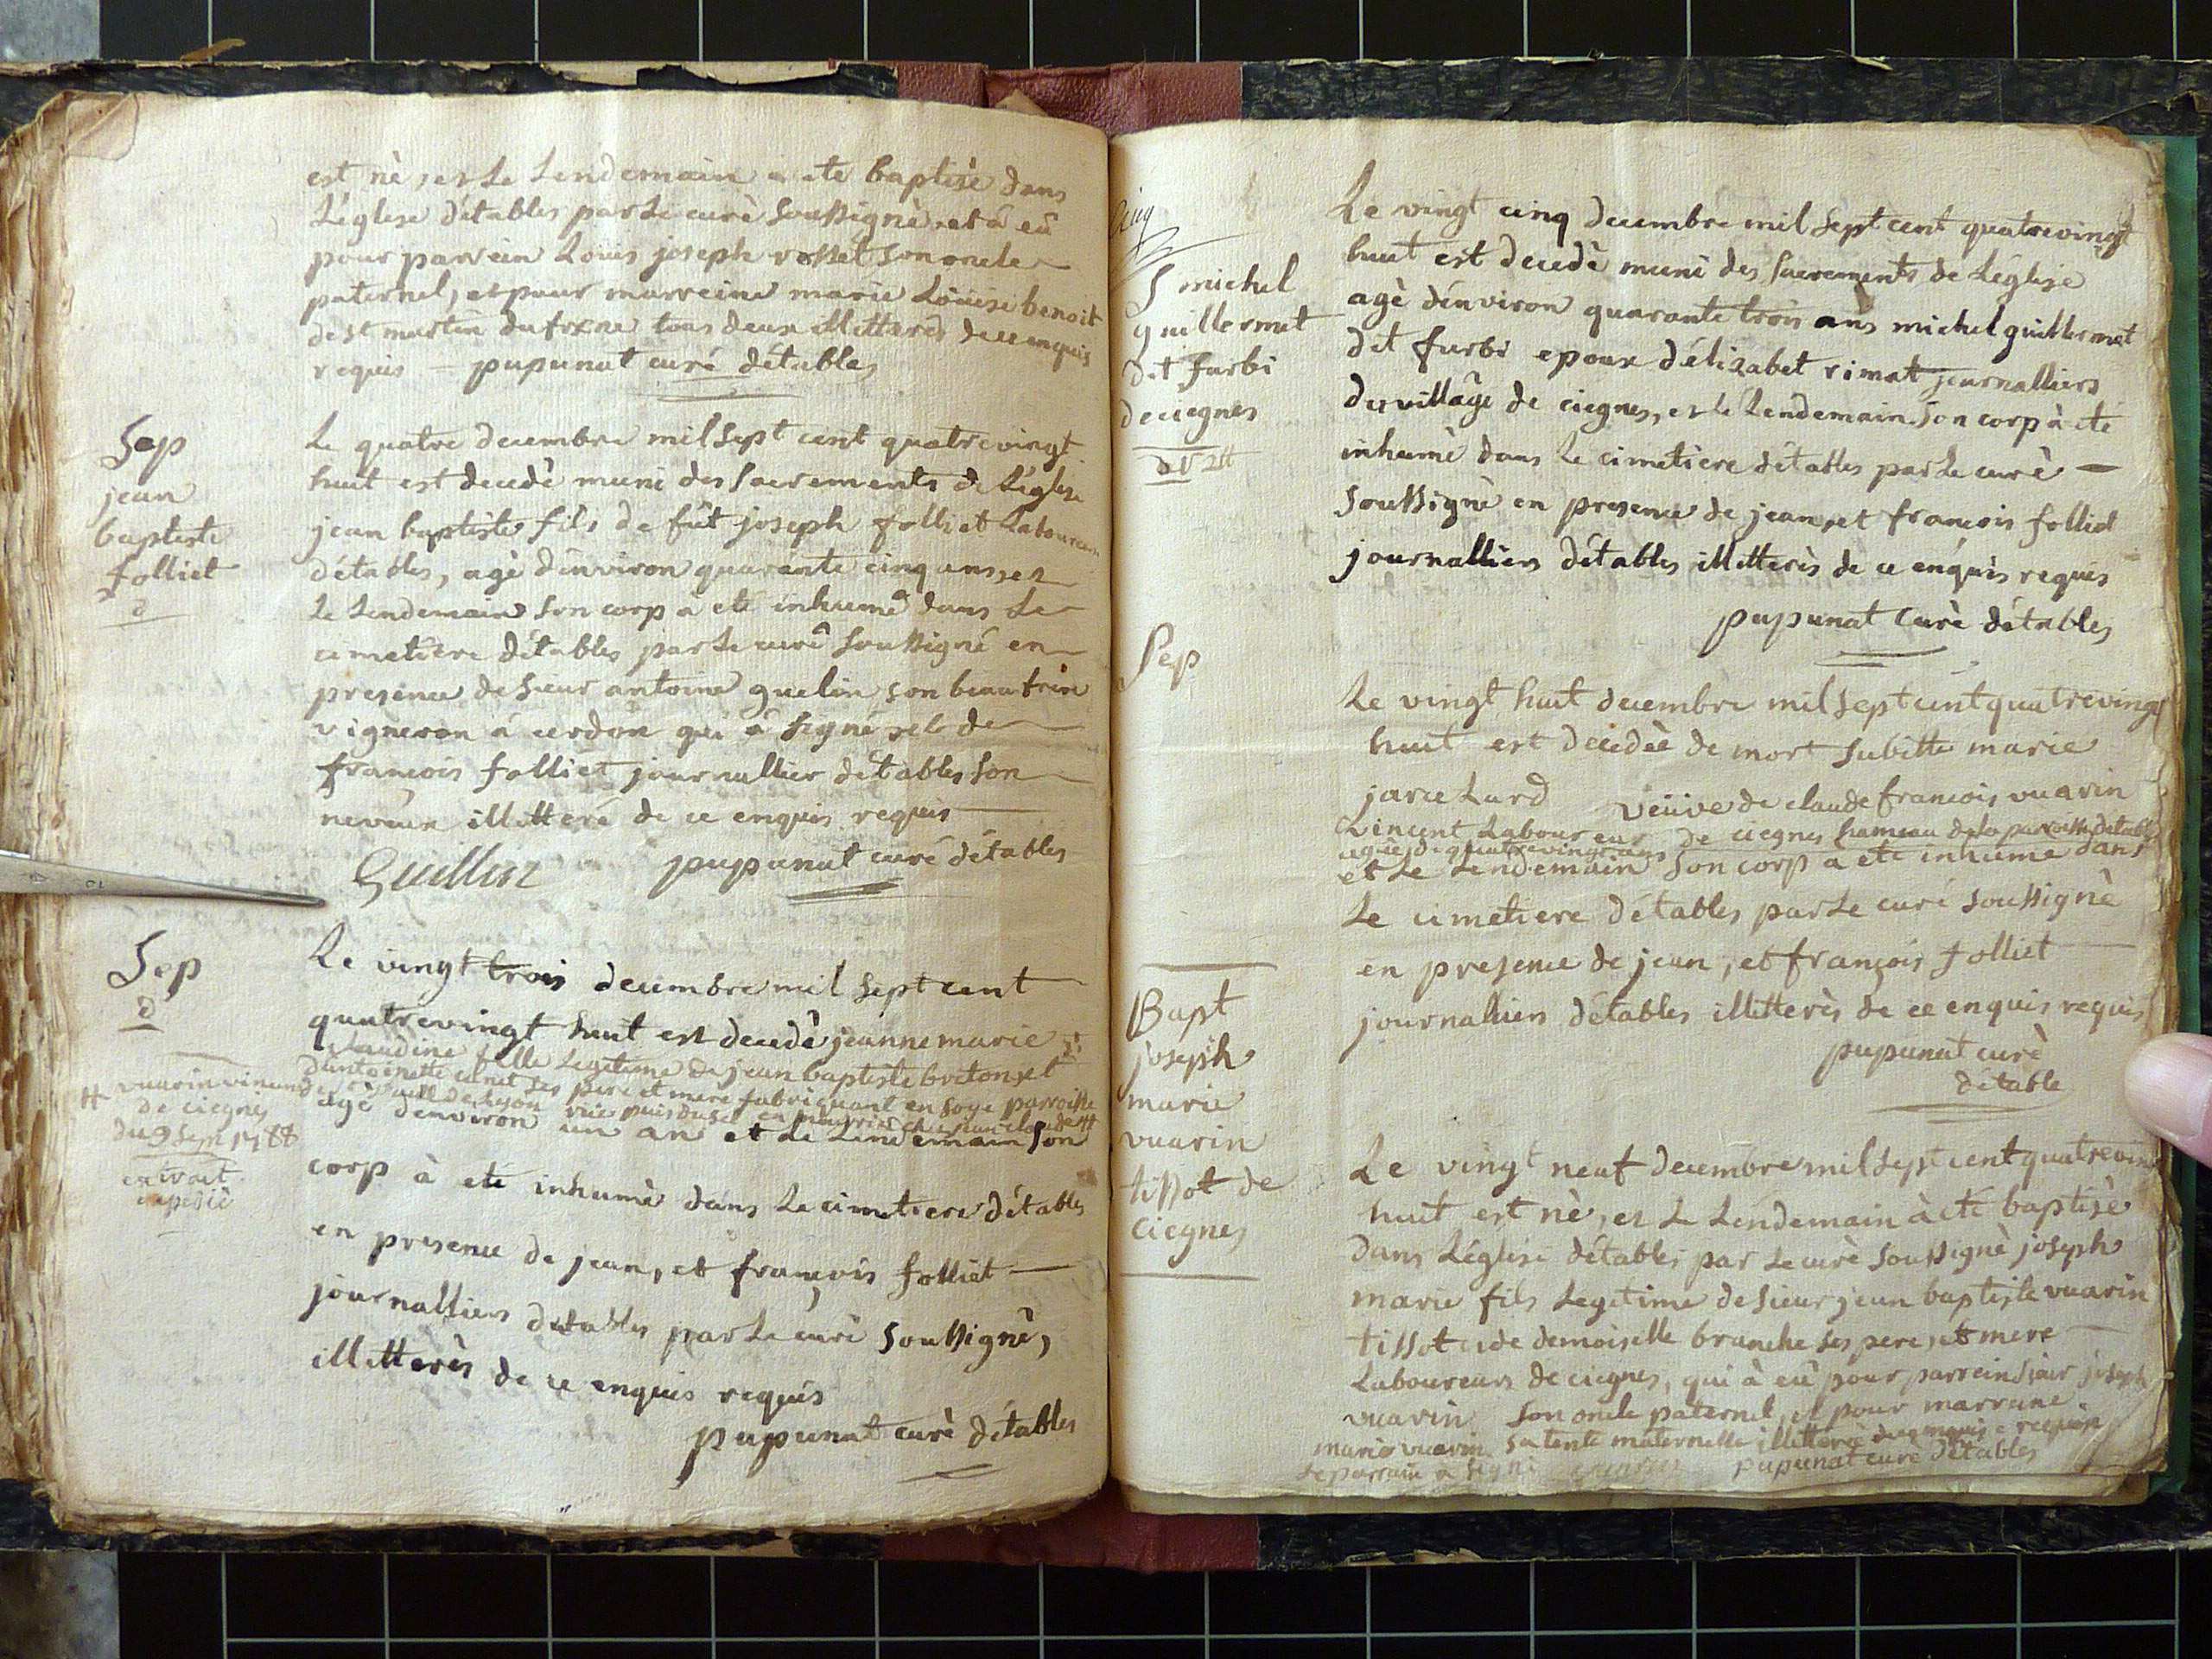 est né, et le lendemain a ete baptisé dans
L'église d'étables par le curé soussigné, et à eû
pour parrein Loüis joseph rosset son oncle
paternel, et pour marreine marie Loüise benoit
de st martin du frene tous deux illitterés de ce enquis
requis = pupunat curé d'étables
Sep
jean
baptiste
folliet
d
Le quatre decembre mil sept cent quatrevingt
huit est decedé muni des sacrements de L'église
jean baptiste fils de fût joseph folliet Laboureur
d'étables, agé d'environ quarante cinq ans, et
Le Lendemain son corp à eté inhumé dans Le
cimetiere d'étables par Le curé soussigné en
presence de sieur antoine guelin son beau frere
vigneron à cerdon qui à signé, et de
françois folliet journallier d'étables son
neveux illitteré de ce enquis requis
Guillin pupunat curé d'étables
Sep
d
Le vingt trois decembre mil sept cent
quatrevingt huit est decedè jeanne marie
claudine fille Legitime de jean baptiste breton, et
d'antoinette canet ses pere et mere fabriquant en soye parroisse
de de Lyon
agè d'environ un an et Le Lendemain son
# vuarin vincent
de ciegnes
du 9 sep 1788
extrait
expedié
corp à eté inhumé dans Le cimetiere d'étables
en presence de jean, et françois folliet
journalliers d'etables par Le curé soussigné,
illitterès de ce enquis requis
pupunat curé d'étables
S michel
guillermet
dit furbi
de ciegnes
Le vingt cinq decembre mil sept cent quatrevingt
huit est decedè muni des sacrements de L'église
agè d'énviron quarante trois ans michel guillermet
dit furbi epoux d'élizabet rimat journalliers
du village de ciegnes, et le Lendemain son corp à eté
inhumè dans Le cimetiere d'étables par Le curè
soussignè en presence de jean, et francois folliet
journalliers d'étables illitterès de ce enquis requis
pupunat curè d'étables
Sep
Le vingt huit decembre mil sept cent quatrevingt
huit est decedèe de mort subitte marie
jarcelurd veüive de claude francois vuarin
vincent Laboureur de ciegnes hameau de la parroisse d'etables
agée de quatrevingt ans
et Le Lendemain son corp a eté inhume dans
Le cimetiere d'étables par Le curé soussignè
en presence de jean, et françois folliet
journaliers d'étables illitterès de ce enquis requis
pupunat curè
d'étable
Bapt
joseph
marie
vuarin
tissot de
ciegnes
Le vingt neuf decembre mil sept cent quatrevingt
huit est nè, et Le Lendemain à eté baptisè
dans L'église d'étables par Le curè soussignè joseph
marie fils Legitime de sieur jean baptiste vuarin
tissot et de demoiselle branche ses pere, et mere
Laboureurs de ciegnes, qui à eû pour parrein sieur joseph
vuarin son oncle paternel, et pour marraine
marie vuarin sa tente maternelle illitterè de ce enquis requise
Le parrain a signé pupunat curè d'étables